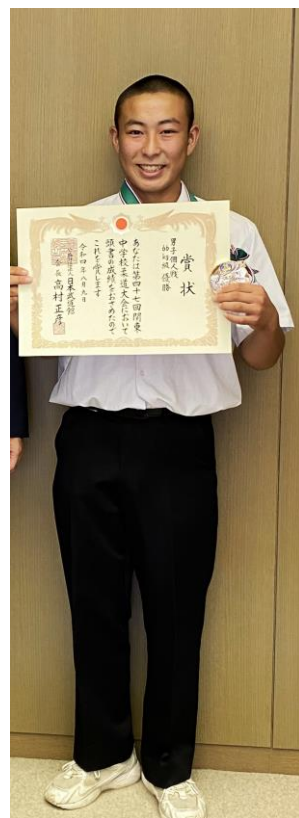 賞状
男子個人戦
優勝
あなたは第四十七回関東
中学校柔道大会において
頭書の成績をおさめたので
これを賞します
令和四年八月九日
日本武道館
会長 高村正彦